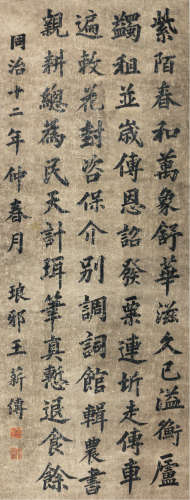 紫陌春和萬象舒華滋久已溢衡廬
蠲租並歲傳恩詔發粟連圻走傳車
遍敕花封咨保介別調詞館輯農書
親耕總為民天計珥筆真慙退食餘
同治十二年仲春月 琅邪王薪傳